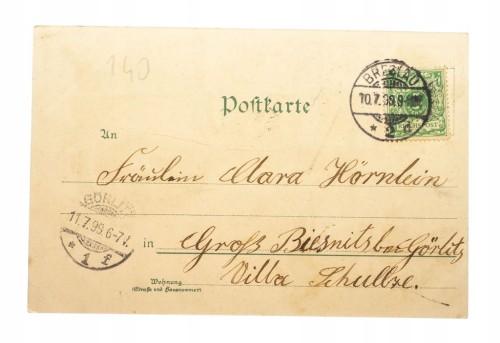 140
BRESLAU
10.7.99.9-
* 2 f
Postkarte
An
Fräulein Clara Hörnlein
GÖRLITZ
11.7.99.6-7V.
* 1 f
in Groß Biesnitz bei Görlitz
Villa Schultze.
Wohnung
(Straße und Hausnummer)